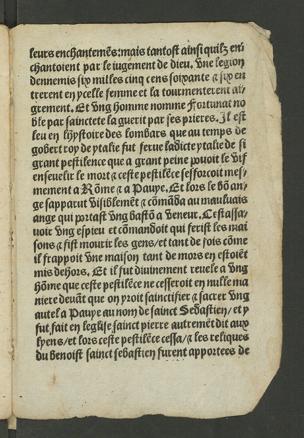 leurs enchantemēs: mais tantost ainsi quilz en
chantoient par le iugement de dieu. vne legion
dennemis six milles cinq cens soixante ⁊ six en
trerent en ycelle femme et la tourmenterent ai
grement. Et vng homme nomme Fortunat no
ble par sainctete la guerit par ses prieres. Il est
leu en lhystoire des lombars que au temps de
gobert roy de ytalie fut ferue ladicte ytalie de si
grant pestilence que a grant peine pouoit le vif
enseuelir le mort ⁊ ceste pestilēce sefforcoit mes/
mement a Rōme ⁊ a Pauye. Et lors le bō an/
ge sapparut visiblemēt ⁊ cōmāda au mauluais
ange qui portast vng bastō a veneur. Cestassa/
uoir vng espieu et cōmandoit qui ferist les mai
sons ⁊ fist mourir les gens/ et tant de fois cōme
il frappoit vne maison tant de mors en estoiēt
mis dehors. Et il fut diuinement reuele a vng
hōme que ceste pestilēce ne cesseroit en nulle ma
niere deuāt que on yroit sainctifier ⁊ sacrer vng
autel a Pauye au nom de sainct Sebastien/ et y
fut fait en leglise sainct pierre autremēt dit aux
lyens/ et lors ceste pestilēce cessa/ ⁊ les reliques
du benoist sainct sebastien furent apportees de